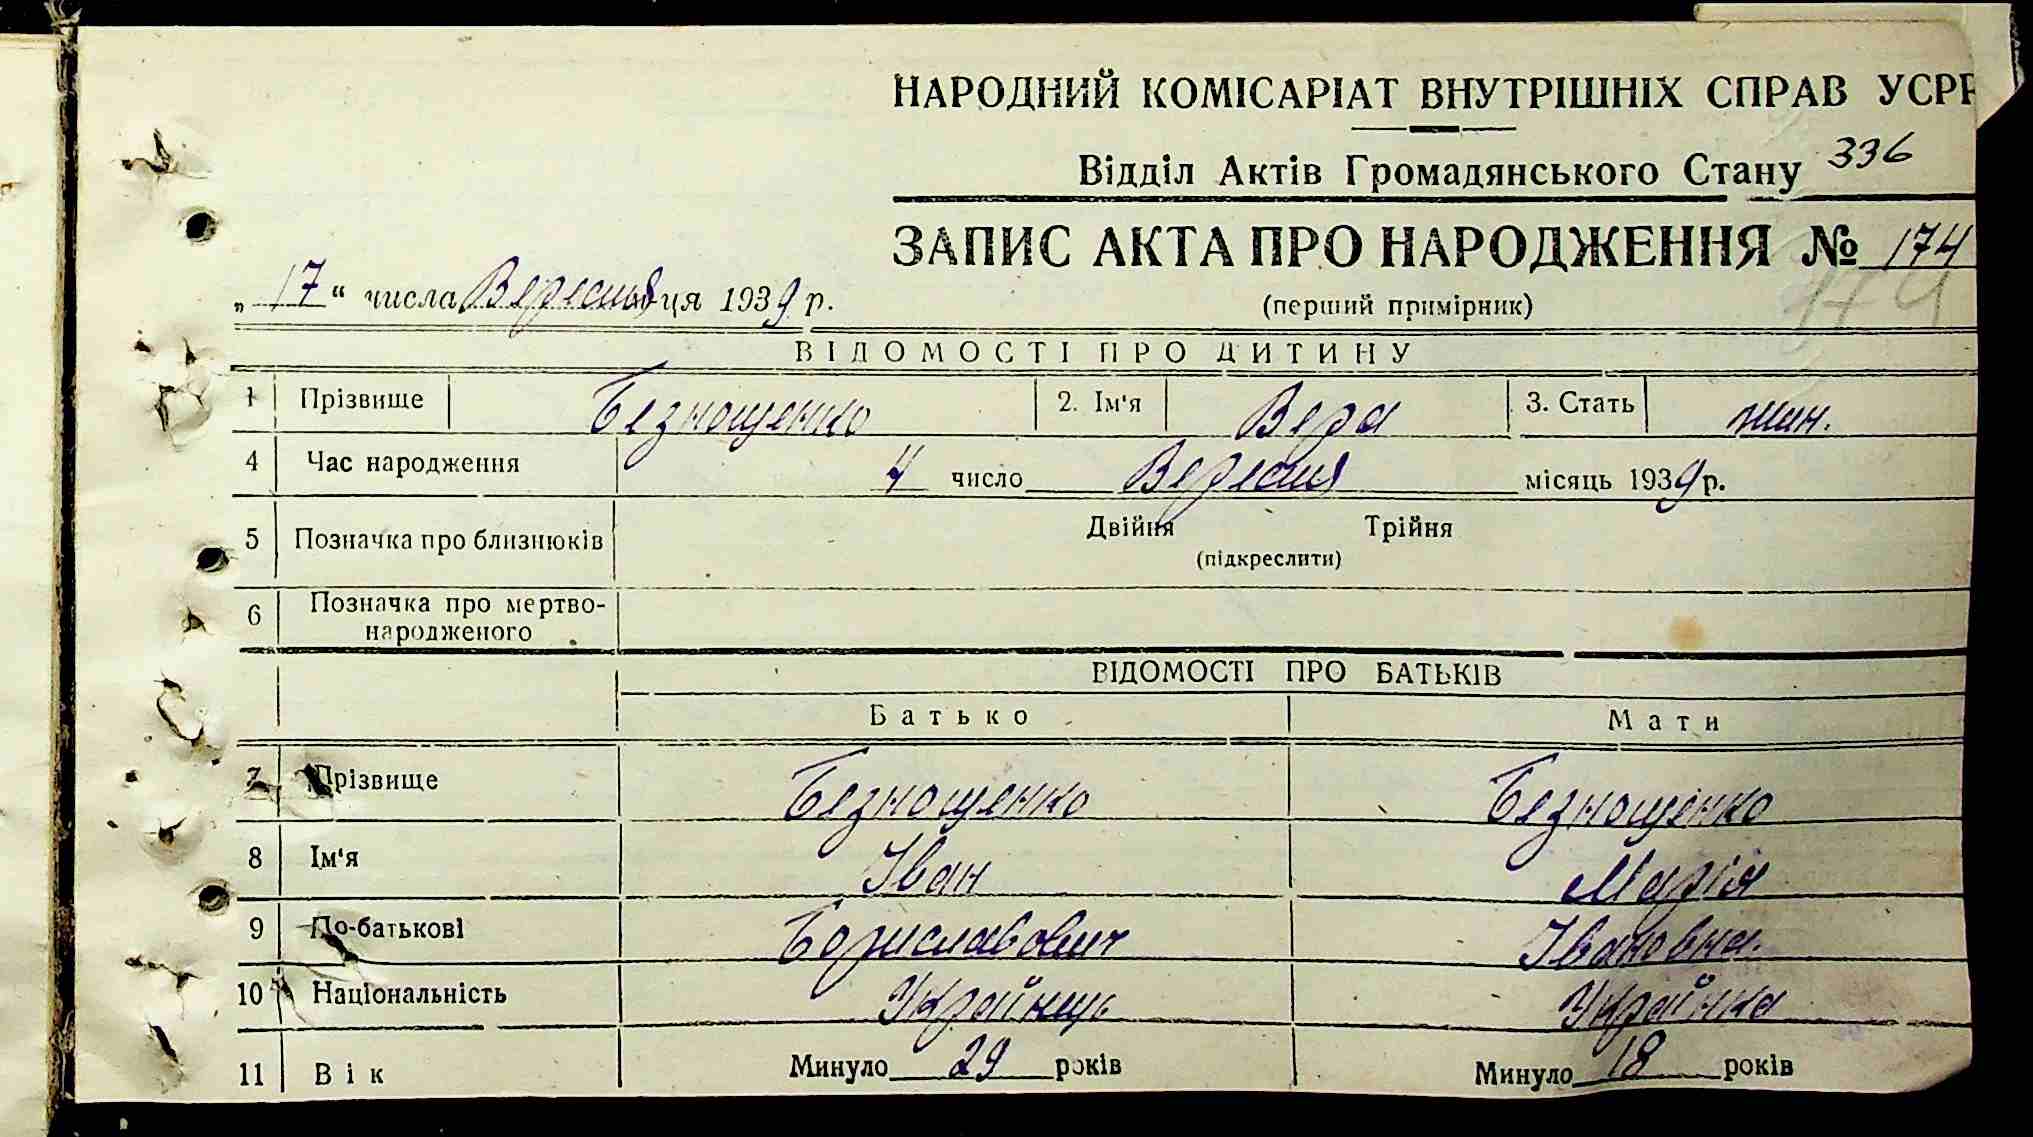 НАРОДНИЙ КОМІСАРІАТ ВНУТРІШНІХ СПРАВ УСРР
Відділ Актів Громадянського Стану 336
ЗАПИС АКТА ПРО НАРОДЖЕННЯ № 174
174
„17“ числа Вересня ця 1939 р.
(перший примірник)
ВІДОМОСТІ ПРО ДИТИНУ
1 Прізвище Безнощенко 2. Ім'я Вера 3. Стать жін.
4 Час народження 4 число Вересня місяць 1939 р.
5 Позначка про близнюків Двійня Трійня
(підкреслити)
6 Позначка про мертво-
народженого
ВІДОМОСТІ ПРО БАТЬКІВ
Батько Мати
7 Прізвище Безнощенко Безнощенко
8 Ім'я Іван Марія
9 По-батькові Бориславович Івановна
10 Національність Українць Українка
11 Вік Минуло 29 років Минуло 18 років